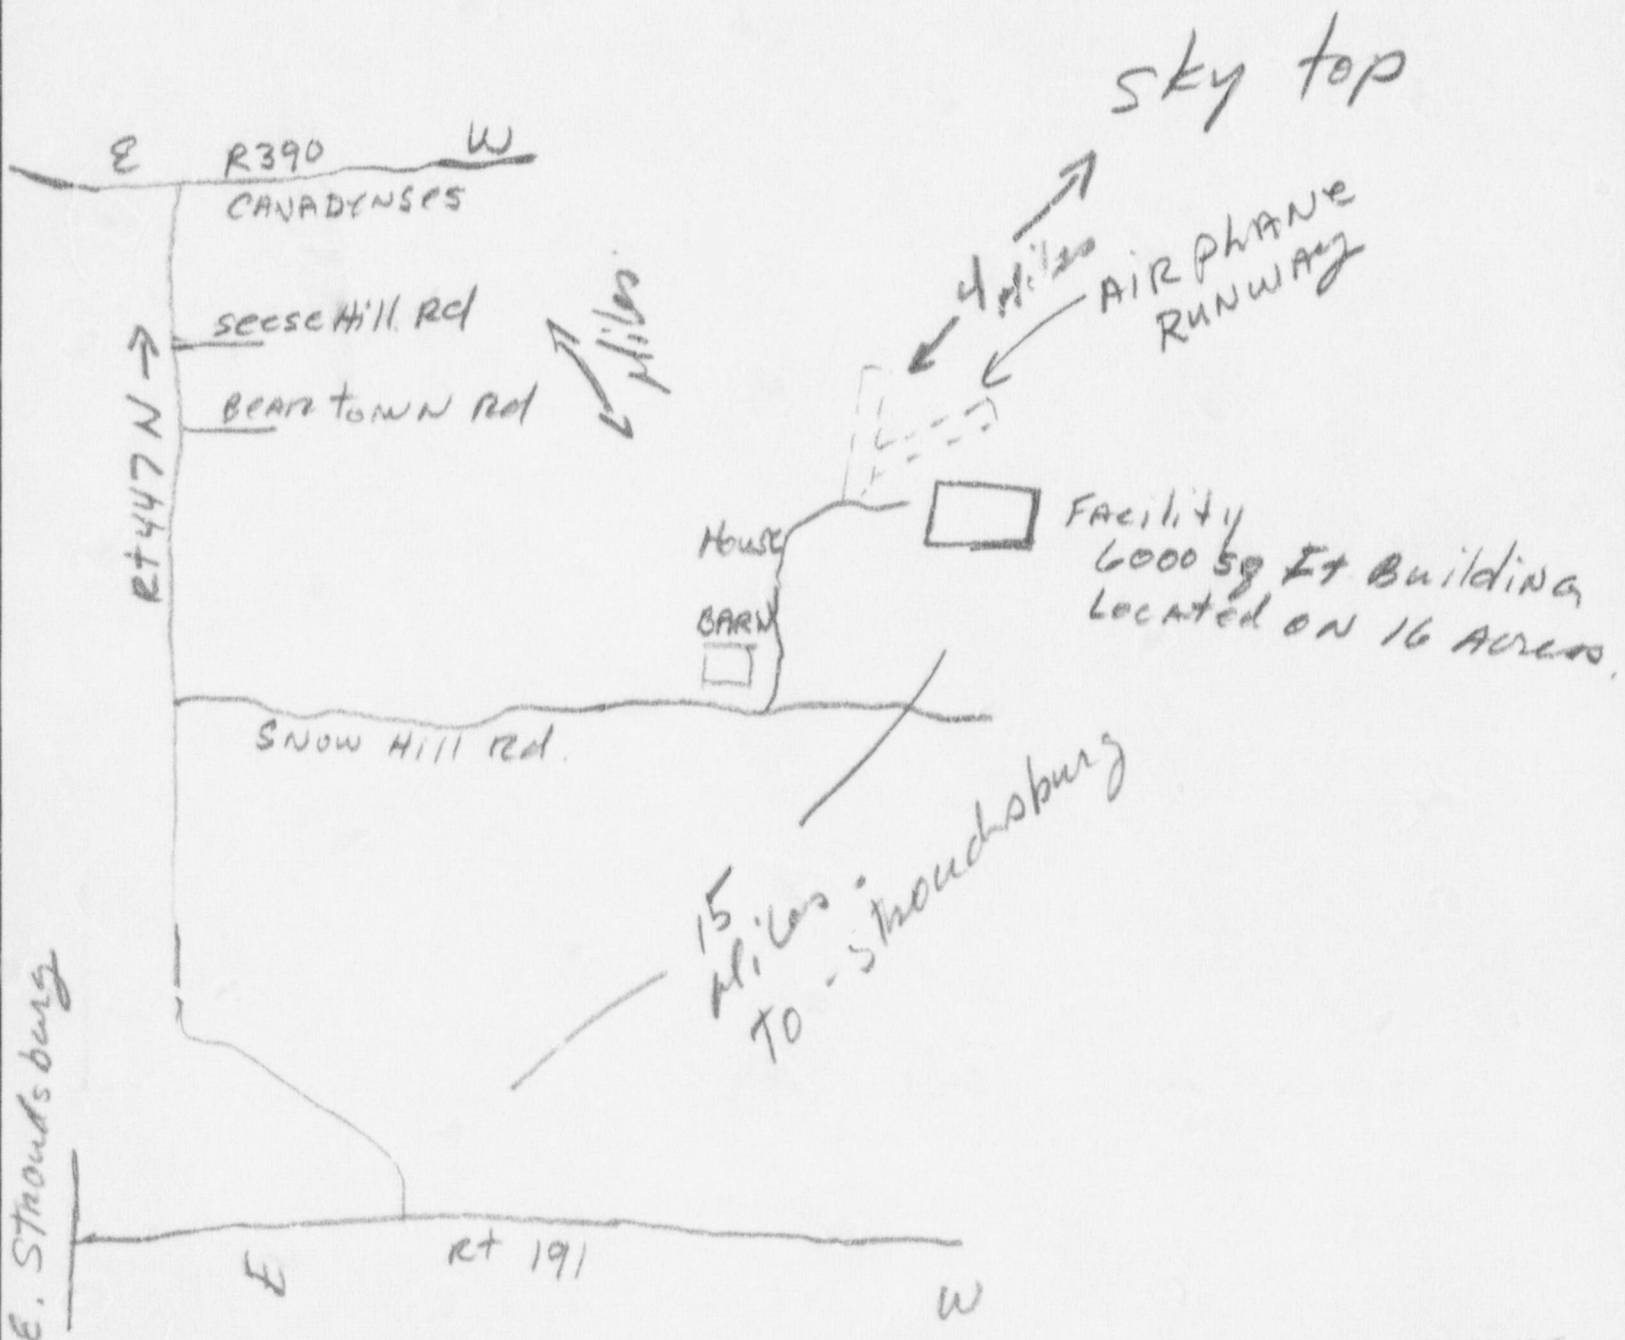 sky top
E R390 W
CANADYNSES
4 Miles
AIRPLANE
RUNWAY
Seese Hill Rd
Miles
Bear town Rd
Rt 447 N →
House
Facility
6000 sq Ft Building
Located on 16 Acress.
BARN
Snow Hill Rd.
15
Miles.
TO - Stroudsburg
E. Stroudsburg
E Rt 191 W